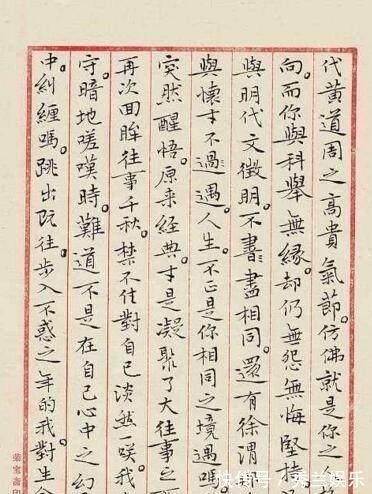 代黄道周之高貴氣節。仿佛就是你之
向。而你與科舉無緣。却仍無怨無悔堅持
與明代文徵明。不書盡相同。還有徐渭
與懷才不過遇。人生。不正是你相同之境遇嗎。
突然醒悟。原来經典。才是凝聚了大往事之
再次回眸往事千秋。禁不住對自己淡然一咲。我
守暗地嗟嘆時。難道不是在自己心中之幻
中糾纏嗎。跳出既往。步入不惑之年的我。對生
榮寶齋印
快传号/东兰娱乐